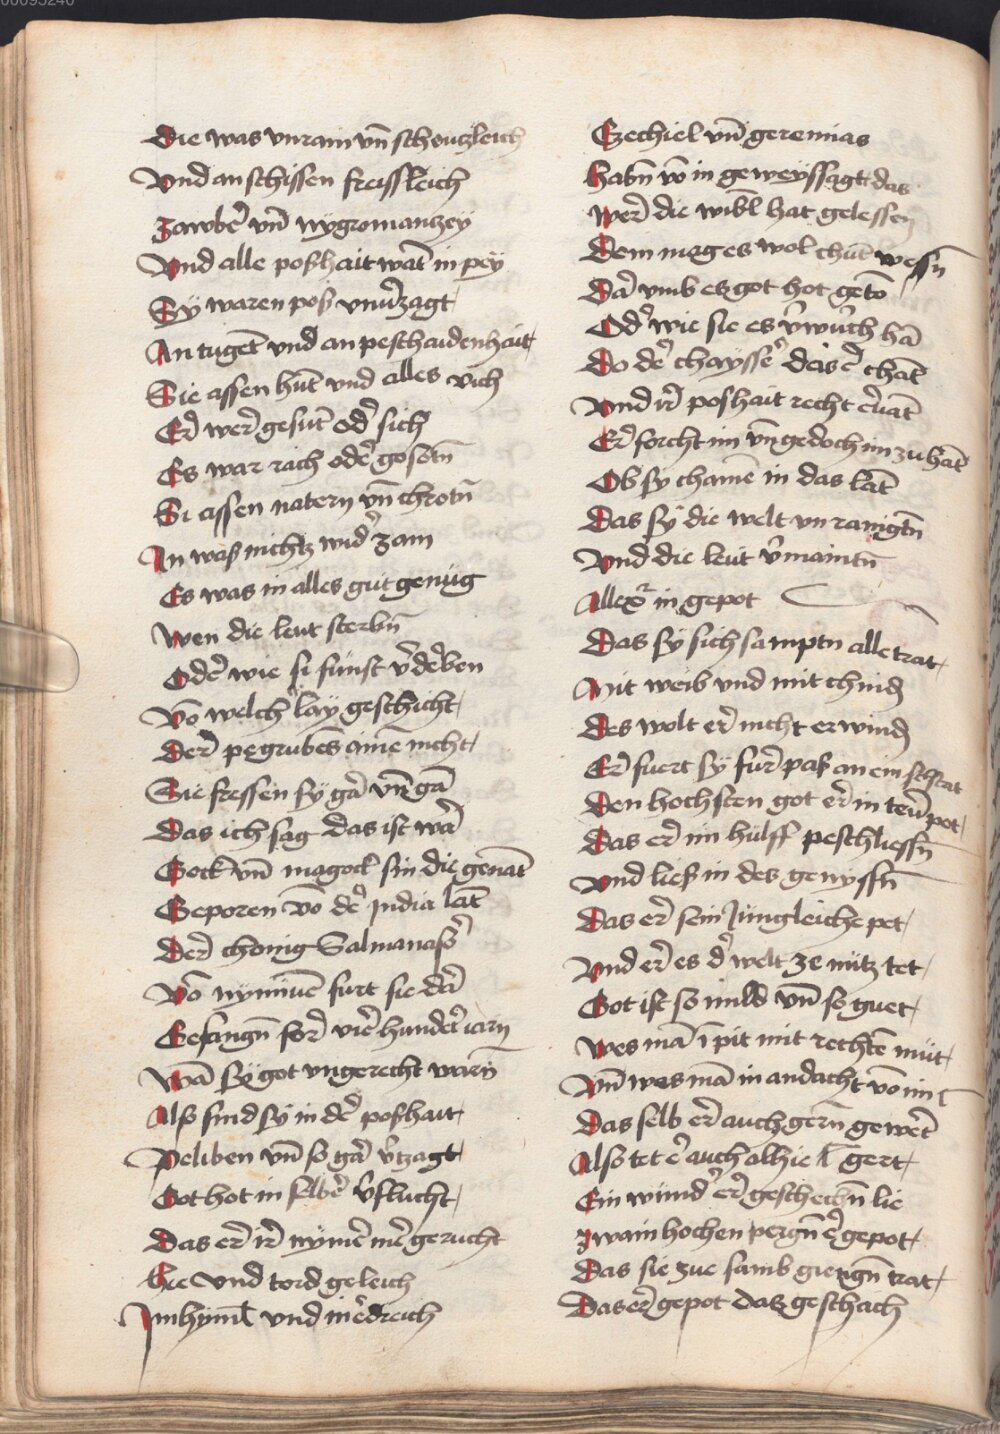 00095240
Die was vnrain vn̄ scheuczleich
Vnd an schissen freissleich
Zawber̄ vn̄ nygromanczey
Vnd alle poshait wat̄ in pey
Sy waren pos vnuerzagt
An tuget̄ vnd an peschaidenhait
Sie assen hūt vnd alles vich
Er wer̄ gesūt oder̄ sich
Es war rach oder̄ gesotn̄
Si assen natern vn̄ chrotn̄
In was nichtz wider̄ zam
Es was in alles gut genug
Wen die leut sterbn̄
Oder̄ wie si sunst v̄derben
Vō welcher̄lay geschicht
Der̄ pegrubens ainē nicht
Sie fressen sy gar̄ vn̄ gar̄
Das ich sag das ist war̄
Gock vn̄ magock sin die genāt
Geporen vō der̄ India lāt
Der̄ chonig Salmanaser̄
Vō nyniuē furt sie da̅
Gefangn̄ for vier̄ hunder̄t iarn
Wā sy got vngerecht warn̄
Also sind sy in der̄ poshait
Peliben vn̄ so gar̄ v̄tzagt
Got hot in selber̄ v̄flucht
Das er̄ ir̄ nymer̄ mer̄ gerucht
Hie vnd tord geleich
Im hyml̄ vnd in er̄dreich
Ezechiel vn̄ geremias
Habn̄ vō in geweyssagt das
Wer̄ die wibl̄ hat gelessen
Dem mag es wol chūt wessn̄
Dar̄ vmb ez got hot getō
Oder̄ wie sie es v̄wurch hā
Do der̄ chaysser̄ das er̄chāt
Vnd ir̄ poshait recht er̄vāt
Er̄ forcht im vn̄ gedoch im zu hāt
Ob sy chamē in das lāt
Das sy die welt vn ranigtn̄
Vnd die leut v̄mainttn̄
Allex̄ in gepot
Das sy sich samptn alle trat
Mit weib vnd mit chind
Des wolt er̄ nicht erwind
Er̄ fuert sy fur̄ pas an ein stat
Den hochsten got er̄ in teur̄ pot
Das er̄ im hulff peschliessn̄
Vnd lies in des genyssn̄
Das er̄ sein Jungleiche pet
Vnd er̄ es der̄ welt ze nutz tet
Got ist so mild vn̄ so guet
Wes mā ī pit mit rechtē mut
Vn̄ wes mā in andacht vō im
Das selb er̄ auch gern̄ gewer̄t
Also tet er̄ auch alhie gert
Ein wund̄er̄ er̄ geschechn̄ lie
Zwain hochen pergn̄ er̄ gepot
Das sie zue samb giengn̄ trat
Das er̄ gepot das geschach